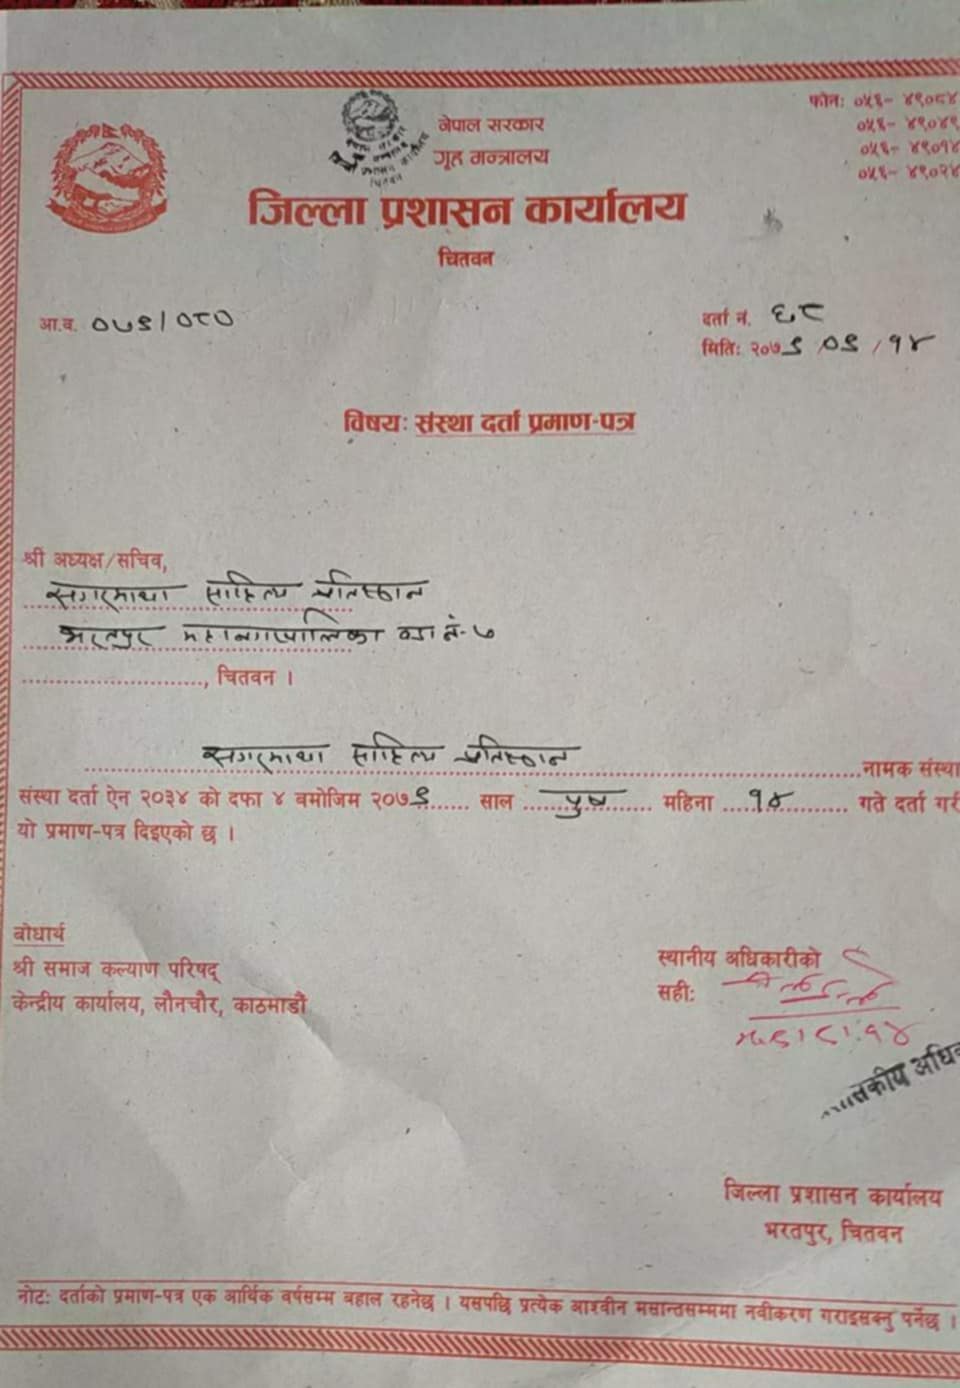 फोन: ०५६- ४९०८४
०५६- ४९०४९
०५६- ४९०१४
०५६- ४९०२४
नेपाल सरकार
गृह मन्त्रालय
जिल्ला प्रशासन कार्यालय
चितवन
आ.व. ०७९/०८०
दर्ता नं. ६८
मिति: २०७९/०९/१४
विषय: संस्था दर्ता प्रमाण-पत्र
श्री अध्यक्ष/सचिव,
सगरमाथा साहित्य प्रतिष्ठान
भरतपुर महानगरपालिका वडा नं-७
......................., चितवन ।
सगरमाथा साहित्य प्रतिष्ठान नामक संस्था
संस्था दर्ता ऐन २०३४ को दफा ४ बमोजिम २०७९ साल पुष महिना १४ गते दर्ता गरी
यो प्रमाण-पत्र दिइएको छ ।
बोधार्थ
श्री समाज कल्याण परिषद्
केन्द्रीय कार्यालय, लैनचौर, काठमाडौं
स्थानीय अधिकारीको
सही:
जिल्ला प्रशासन कार्यालय
भरतपुर, चितवन
नोट: दर्ताको प्रमाण-पत्र एक आर्थिक वर्षसम्म बहाल रहनेछ । यसपछि प्रत्येक आश्वीन मसान्तसम्ममा नवीकरण गराइसक्नु पर्नेछ ।